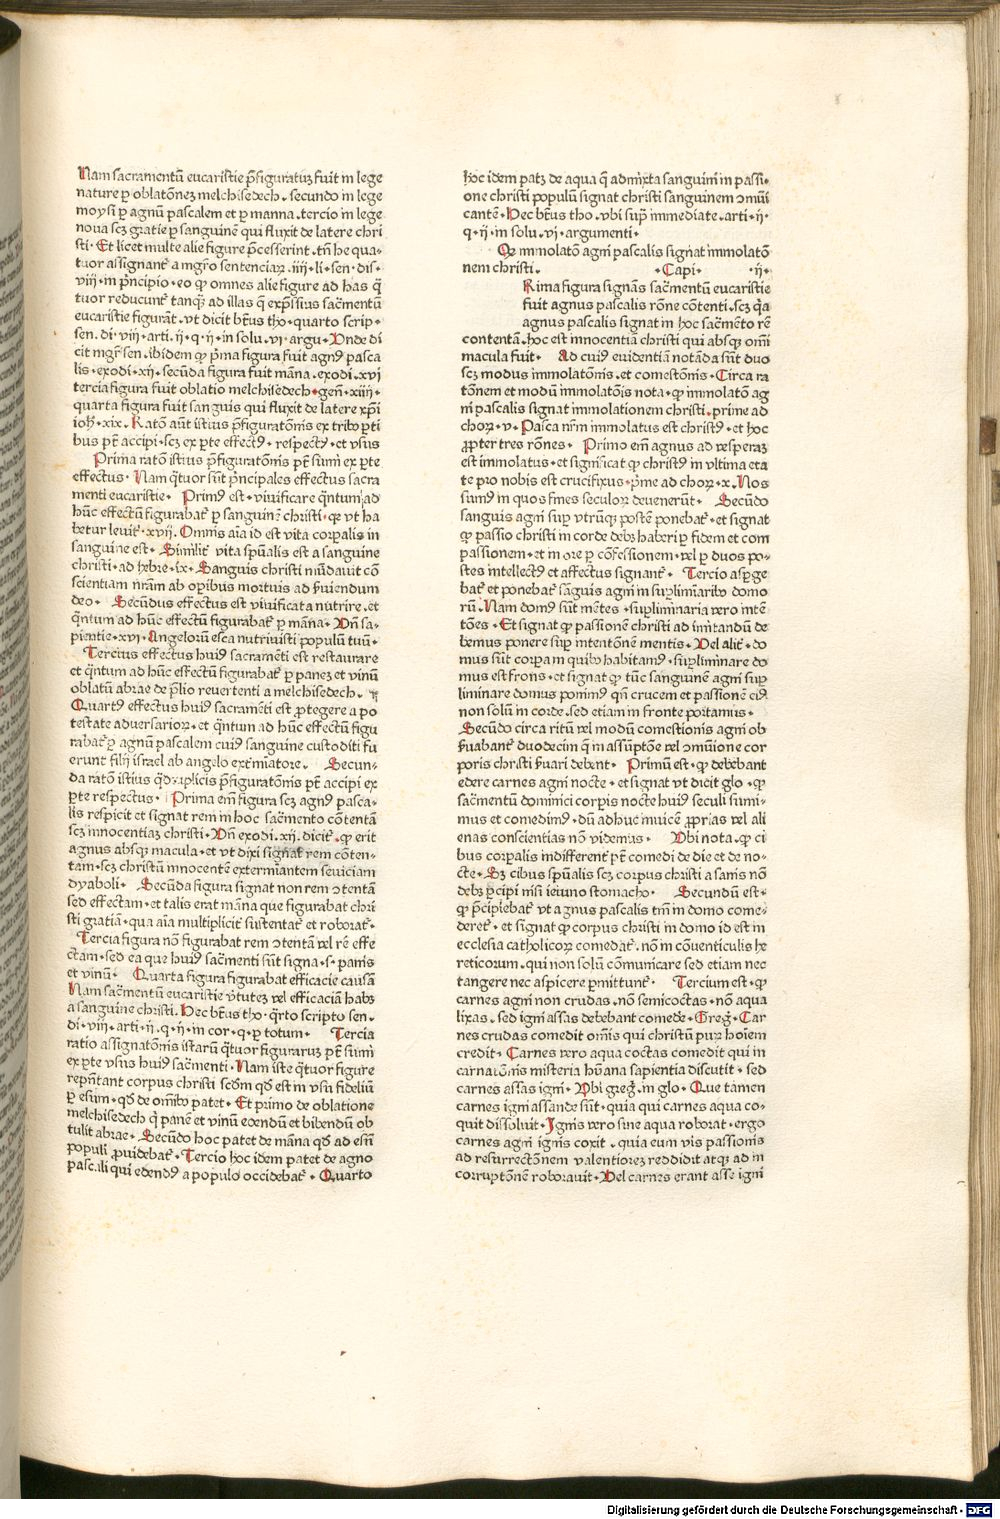 Nam sacramentū eucaristie p̄figuratuȝ fuit in lege
nature ꝑ oblatōneȝ melchisedech. secundo in lege
moysi ꝑ agnū pascalem et ꝑ manna. tercio in lege
noua scȝ gratie ꝑ sanguinē qui fluxit de latere chri
sti. Et licet multe alie figure p̄cesserint. tn̄ he qua-
tuor assignant᷑ a mgr̄o sentenciaꝝ .iiij. li. sen. dis.
viij. in pͥncipio. eo ꝙ omnes alie figure ad has q̄
tuor reducunt᷑ tanqȝ ad illas q̄ exp̄ssius sac̄mentū
eucaristie figurāt. vt dicit bt̄us tho. quarto scrip.
sen. di. viij. arti. ij. q. ij. in solu. vi. argu. Vnde di
cit mgr̄ sen. ibidem ꝙ pͥma figura fuit agnꝰ pasca
lis. exodi. xij. secūda figura fuit māna. exodi. xvi
tercia figura fuit oblatio melchisedech. gen̄. xiiij.
quarta figura fuit sanguis qui fluxit de latere xp̄i
ioh̄. xix. Ratō aūt istius p̄figuratōnis ex tribꝰ ꝑti
bus pt̄ accipi. scȝ ex ꝑte effectꝰ. respectꝰ. et vsus
Prima ratō istius p̄figuratōnis pt̄ sumi ex ꝑte
effectus. Nam q̄tuor sūt pͥncipales effectus sacra
menti eucaristie. Primꝰ est. viuificare q̄ntum ad
hūc effectū figurabat᷑ ꝑ sanguinē christi. qꝛ vt ha
betur leuit᷑. xvij. Omnis aīa id est vita corꝑalis in
sanguine est. Similit᷑ vita spūalis est a sanguine
christi. ad hebre. ix. Sanguis christi mūdauit cō
scientiam nr̄am ab oꝑibus mortuis ad s̄uiendum
deo. Secūdus effectus est viuificata nutrire. et
q̄ntum ad hūc effectū figurabat᷑ ꝑ māna. Vn̄ sa-
pientie. xvi. Angeloꝝ esca nutriuisti populū tuū.
Tercius effectus huiꝰ sacramēti est restaurare
et q̄ntum ad hūc effectū figurabat᷑ ꝑ paneȝ et vinū
oblatū abrae de p̄lio reuertenti a melchisedech.
Quartꝰ effectus huiꝰ sacramēti est ꝓtegere a po
testate aduersarioꝝ. et q̄ntum ad hūc effectū figu
rabat᷑ ꝑ agnū pascalem cuiꝰ sanguine custoditi fu
erunt filij israel ab angelo ext᷑miatore. Secun-
da ratō istius q̄druplicis p̄figuratōnis pt̄ accipi ex
ꝑte respectus. Prima em̄ figura scȝ agnꝰ pasca-
lis respicit et signat rem in hoc sac̄mento cōtentā
scȝ innocentiaȝ christi. Vn̄ exodi. xij. dicit᷑. ꝙ erit
agnus absqȝ macula. et vt dixi signat rem cōten-
tam. scȝ christū innocentē extermīantem seuiciam
dyaboli. Secūda figura signat non rem ↄtentā
sed effectam. et talis erat māna que figurabat chri
sti gratiā. qua aīa multiplicit᷑ sustentat᷑ et roborat᷑.
Tercia figura nō figurabat rem ↄtentā vel rē effe
ctam. sed ea que huiꝰ sac̄menti sūt signa. s. panis
et vinū. Quarta figura figurabat efficacie causā
Nam sac̄mentū eucaristie v̄tuteȝ vel efficaciā habȝ
a sanguine christi. Hec bt̄us tho. q̄rto scripto sen.
di. viij. arti. ij. q. ij. in cor. q. ꝑ totum. Tercia
ratio assignatōnis istarū q̄tuor figuraruȝ pt̄ sumi
ex ꝑte vsus huiꝰ sac̄menti. Nam iste q̄tuor figure
rep̄ntant corpus christi scd̄m qd̄ est in vsu fideliū
ꝑ esum. qd̄ de omībꝰ patet. Et primo de oblatione
melchisedech q̄ panē et vinū edendū et bibendū ob
tulit abrae. Secūdo hoc patet de māna qd̄ ad esū
populi ꝓuidebat᷑. Tercio hoc idem patet de agno
pascali qui edendꝰ a populo occidebat᷑. Quarto
hoc idem patȝ de aqua q̄ admixta sanguini in passi-
one christi populū signat christi sanguinem ↄmūi
cantē. Hec bt̄us tho. vbi supͣ immediate. arti. ij.
q. ij. in solu. vi. argumenti.
Qꝛ immolatō agni pascalis signat immolatō
nem christi. Capi. ij.
Rima figura signās sac̄mentū eucaristie
fuit agnus pascalis rōne cōtenti. scȝ q̄a
agnus pascalis signat in hoc sac̄mēto rē
contentā. hoc est innocentiā christi qui absqȝ omī
macula fuit. Ad cuiꝰ euidentiā notāda sūt duo
scȝ modus immolatōnis. et comestōnis. Circa ra
tōnem et modū immolatōis nota. ꝙ immolatō ag
ni pascalis signat immolationem christi. prime ad
choꝝ. v. Pasca nr̄m immolatus est christꝰ. et hoc
ꝓpter tres rōnes. Primo em̄ agnus ad vesperaȝ
est immolatus. et significat ꝙ christꝰ in vltima eta
te pro nobis est crucifixus. pͥme ad choꝝ. x. Nos
sumꝰ in quos fines seculoꝝ deuenerūt. Secūdo
sanguis agni suꝑ vtrūqȝ postē ponebat᷑. et signat
ꝙ passio christi in corde debȝ haberi ꝑ fidem et com
passionem. et in ore ꝑ cōfessionem. vel ꝑ duos po-
stes intellectꝰ et affectus signant᷑. Tercio asꝑge
bat᷑ et ponebat᷑ sanguis agni in suꝑlimīaribꝰ domo
rū. Nam domꝰ sūt mētes. suꝑliminaria vero intē
tōes. Et signat ꝙ passionē christi ad imitandū de
bemus ponere suꝑ intentōnē mentis. Vel alit᷑. do
mus sūt corpora in quibꝰ habitamꝰ. suꝑliminare do
mus est frons. et signat ꝙ tūc sanguinē agni suꝑ
liminare domus ponimꝰ qn̄ crucem et passionē eiꝰ
non solū in corde. sed etiam in fronte portamus.
Secūdo circa ritū vel modū comestionis agni ob
s̄uabant᷑ duodecim q̄ in assūptōe vel ↄmūione cor
poris christi s̄uari debēt. Primū est. ꝙ debebant
edere carnes agni nocte. et signat vt dicit glo. ꝙ
sac̄mentū dominici corꝑis nocte huiꝰ seculi sumi-
mus et comedimꝰ. dū adhuc inuicē ꝓprias vel ali
enas conscientias nō videmus. Vbi nota. ꝙ ci
bus corꝑalis indifferent᷑ pt̄ comedi de die et de no-
cte. Sȝ cibus spūalis scȝ corpus christi a sanis nō
debȝ ꝑcipi nisi ieiuno stomacho. Secundū est.
ꝙ p̄cipiebat᷑ vt agnus pascalis tm̄ in domo come-
deret᷑. et signat ꝙ corpus christi in domo id est in
ecclesia catholicoꝝ comedat᷑. nō in cōuenticulis he
reticorum. qui non solū cōmunicare sed etiam nec
tangere nec aspicere ꝑmittunt᷑. Tercium est. ꝙ
carnes agni non crudas. nō semicoctas. nō aqua
lixas. sed igni assas debebant comede. Greg̅. Car
nes crudas comedit omīs qui christū puꝝ hoīem
credit. Carnes vero aqua coctas comedit qui in
carnatōnis misteria hūana sapientia discutit. sed
carnes assas igni. Vbi greg̅. in glo. Que tamen
carnes igni assande sūt. quia qui carnes aqua co-
quit dissoluit. Ignis vero sine aqua roborat. ergo
carnes agni ignis coxit. quia eum vis passionis
ad resurrectōnem valentioreȝ reddidit atqȝ ad in
corruptōnē roborauit. Vel carnes erant asse igni
Digitalisierung gefördert durch die Deutsche Forschungsgemeinschaft - DFG